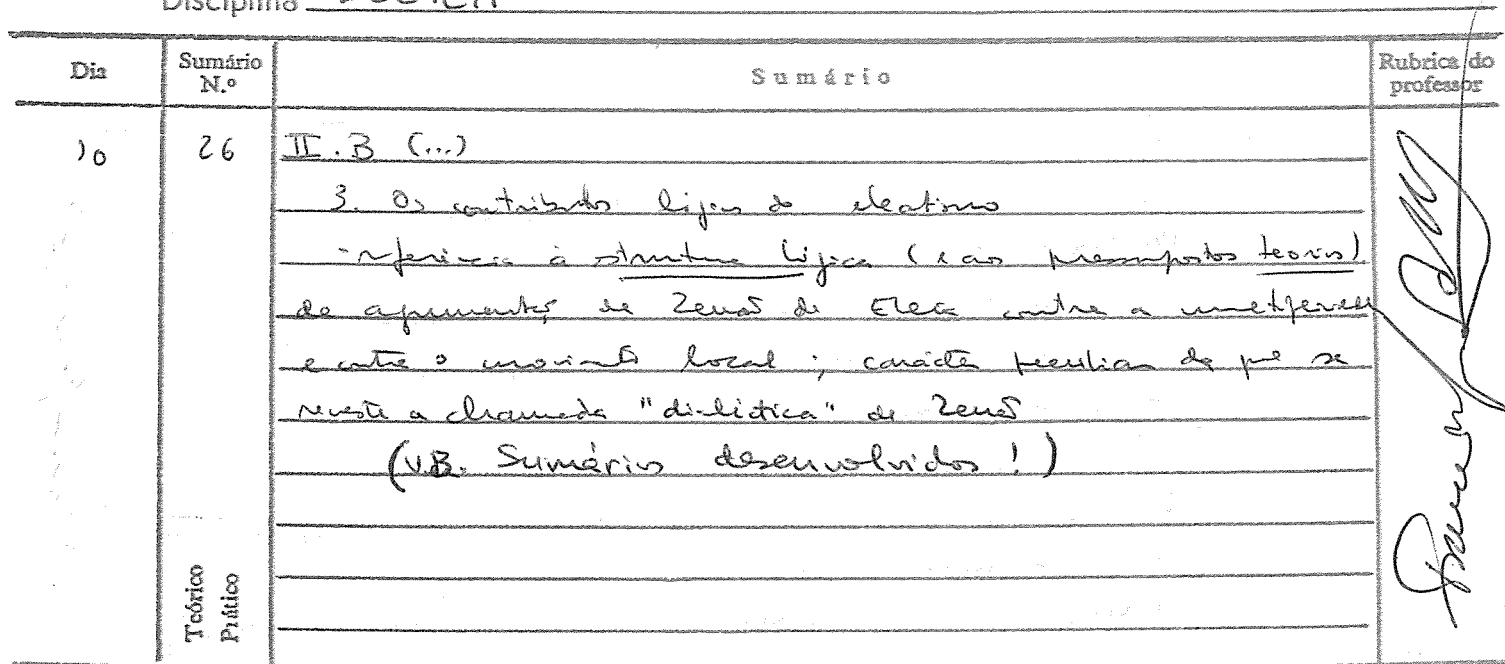 Disciplina
Dia Sumário N.º Sumário Rubrica do professor
26 II.B (...)
3. Os contributos lógicos do eleatismo
- referência à estrutura lógica (e aos pressupostos teóricos)
de de Zenão de Eleia contra a
e contra o movimento local; carácter peculiar de que se
reveste a chamada "dialéctica" de Zenão
(V.B. Sumários desenvolvidos!)
Teórico
Prático